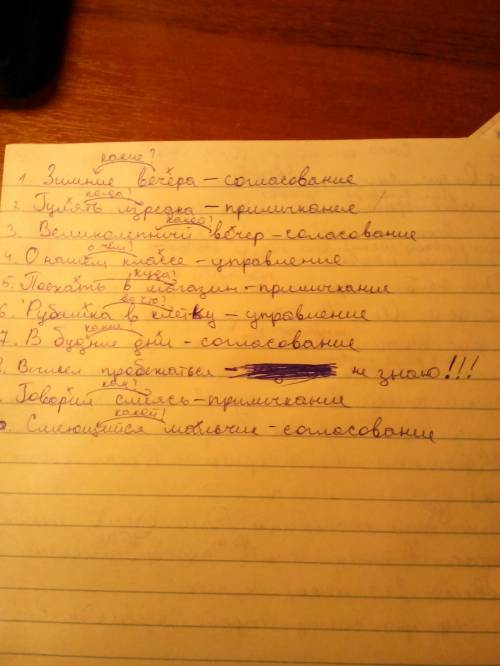 какие?
1. Зимние вечера – согласование
когда?
2. Гулять изредка – примичкание
какой?
3. Великолепный вечер – соласование
о чём?
4. О нашем классе – управление
куда?
5. Поехать в магазин – примичкание
во что?
6. Рубашка в клетку – управление
какие?
7. В будние дни – согласование
8. Вышел пробежаться – не знаю!!!
как?
Говорил смеясь – примичкание
какой?
Смеющийся мальчик – согласование